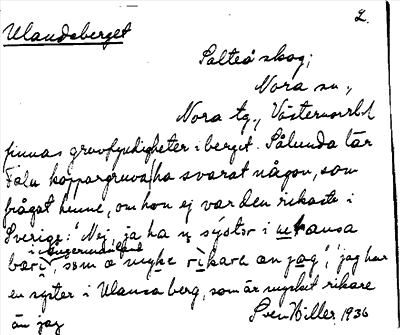 Ulandsberget
2.
Salteå skog;
Nora sn.,
Nora tg., Västernorrl.
finnas gruvfyndigheter i berget. Sålunda lär
Falu koppargruva ha svarat någon, som
frågat henne, om hon ej var den rikaste i
Sverige: "Nej, ja ha n syster i
i Ångermanland
som ä myke rikare än jag", "jag har
en syster i Ulansaberg, som är mycket rikare
än jag
Sven Hiller 1936